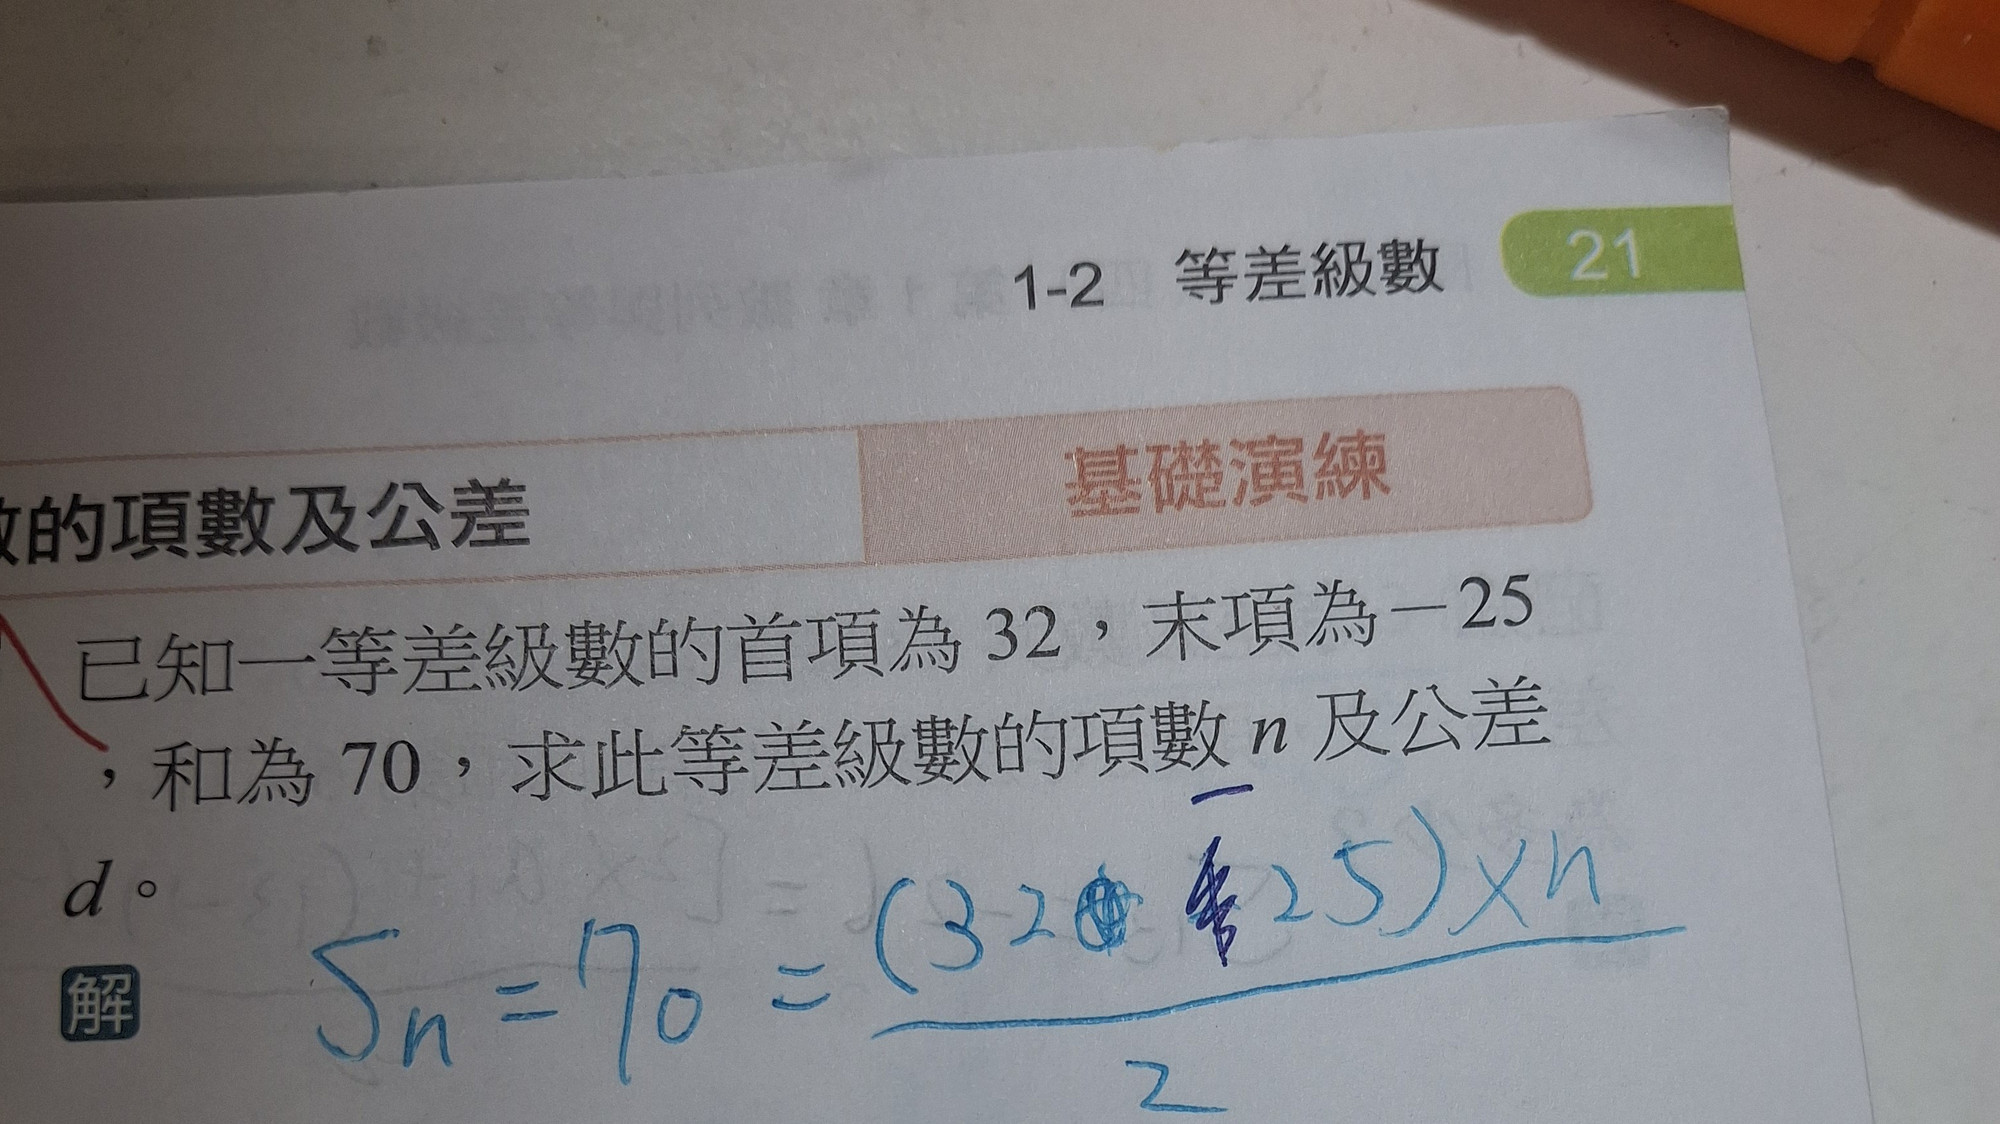 1-2 等差級數 21
的項數及公差 基礎演練
已知一等差級數的首項為 32，末項為－25
，和為 70，求此等差級數的項數 n 及公差
d。
解 Sn = 70 = (32 25) x n
2